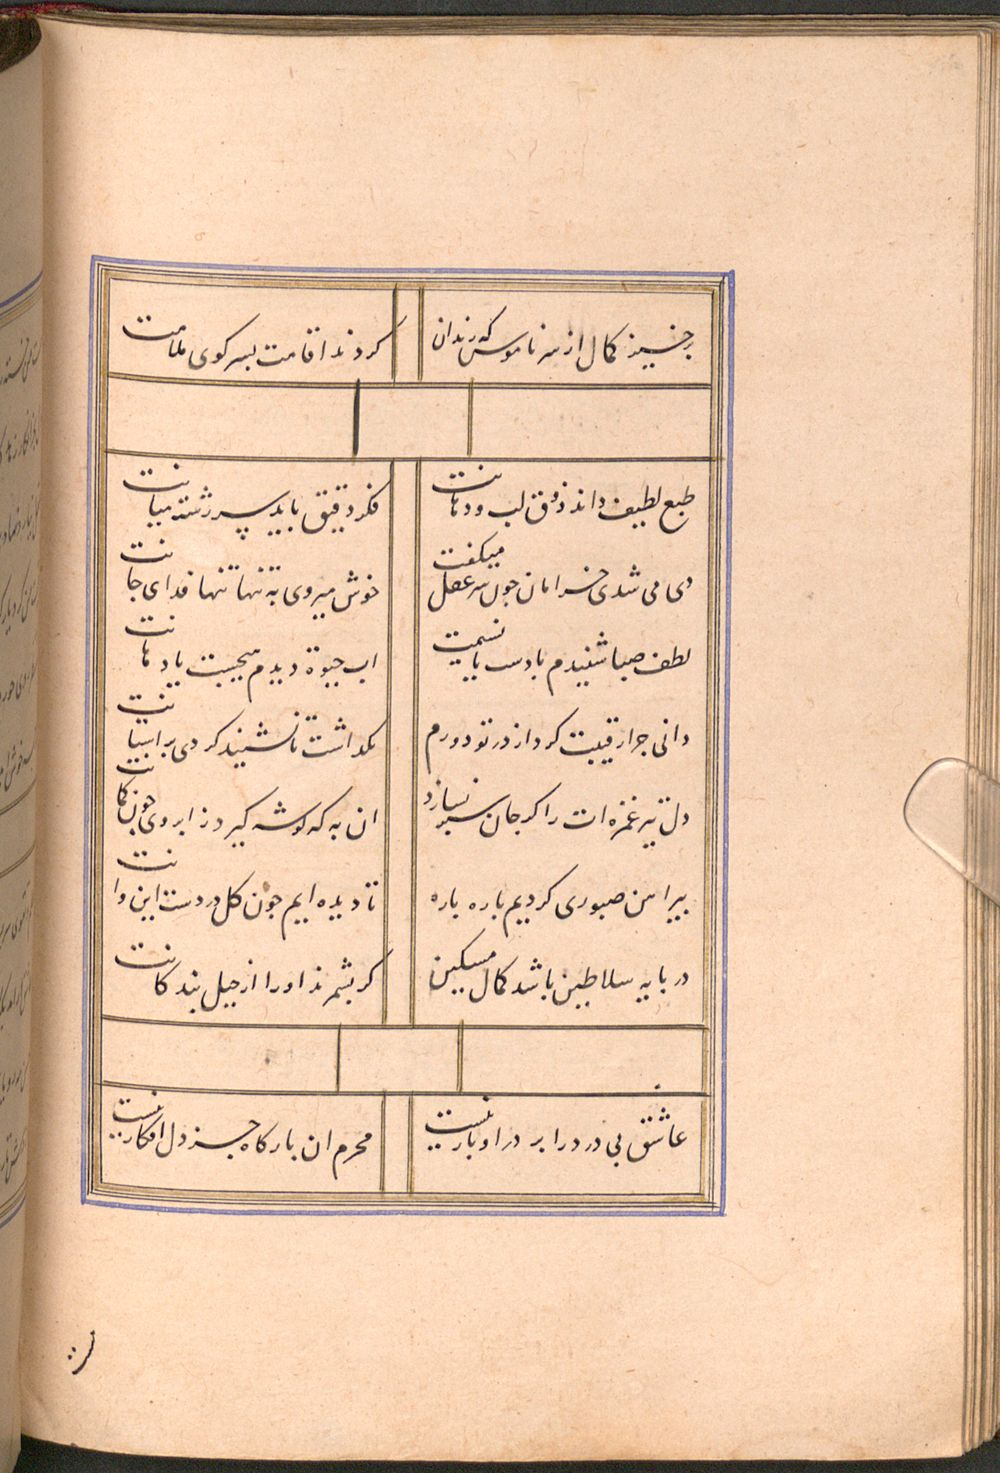 برخیز کمال از سر ناموس که رندان
کردند اقامت بسر کوی ملامت
طبع لطیف داند ذوق لب و دهانت
فکر دقیق باید سر رشته میانت
دی می شدی خرامان جون سرو عقل میکفت
خوش میروی به تنها تنها فدای جانت
لطف صبا شنیدم بادست با نسیمت
اب حیوة دیدم هیجیست با دهانت
دانی جرا رقیبت کرد از در تو دورم
نکداشت تا نشیند کردی بر استانت
دل تیر غمزه ات را کر جان سپر نسازد
ان به که کوشه کیرد ز ابروی جون کمانت
پیراهن صبوری کردیم باره باره
تا دیده ایم جون کل در دست این وانت
در بایه سلاطین باشد کمال مسکین
کر بشمرند او را از خیل بندکانت
عاشق بی درد را بر در او بار نیست
محرم ان بارکاه جز دل افکار نیست